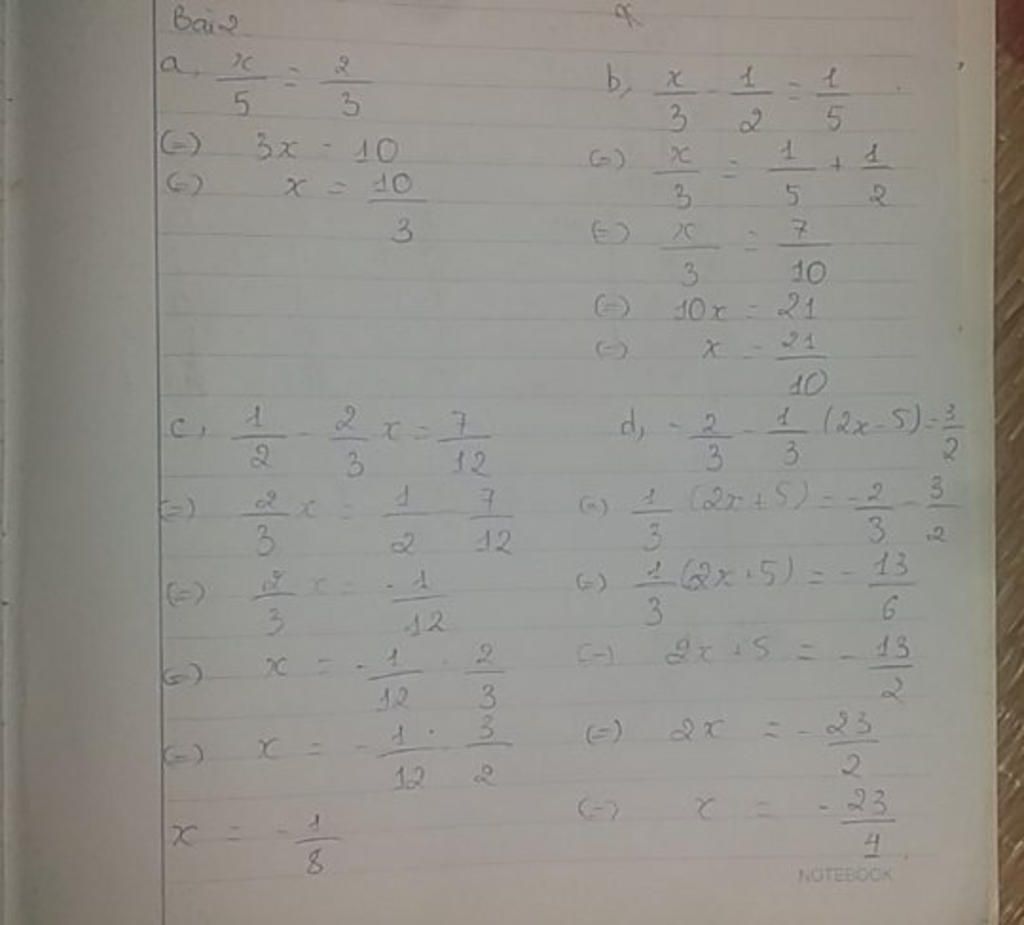 Bài 2
a, x/5 = 2/3
(=) 3x = 10
(=) x = 10/3
b, x/3 - 1/2 = 1/5
(=) x/3 = 1/5 + 1/2
(=) x/3 = 7/10
(=) 10x = 21
(=) x = 21/10
c, 1/2 - 2/3 x = 7/12
(=) 2/3 x = 1/2 - 7/12
(=) 2/3 x = -1/12
(=) x = -1/12 : 2/3
(=) x = -1/12 . 3/2
x = -1/8
d, -2/3 - 1/3 (2x - 5) = 3/2
(=) 1/3 (2x + 5) = -2/3 - 3/2
(=) 1/3 (2x + 5) = -13/6
(=) 2x + 5 = -13/2
(=) 2x = -23/2
(=) x = -23/4
NOTEBOOK